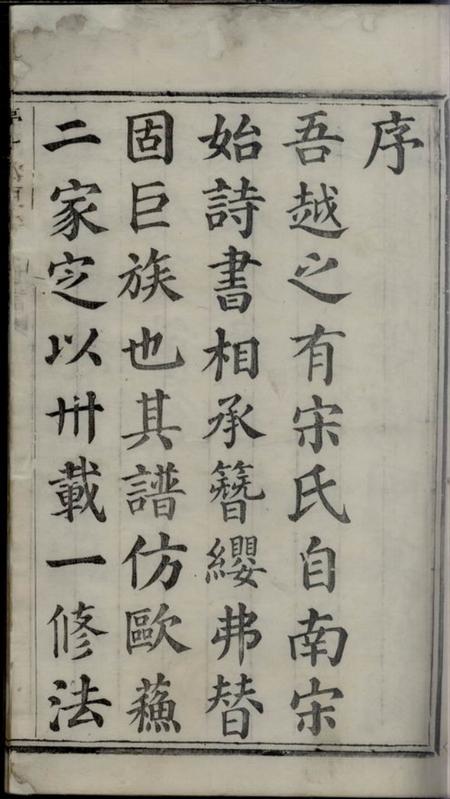 序
吾越之有宋氏自南宋
始詩書相承簪纓弗替
固巨族也其譜仿歐蘓
二家定以卅載一修法